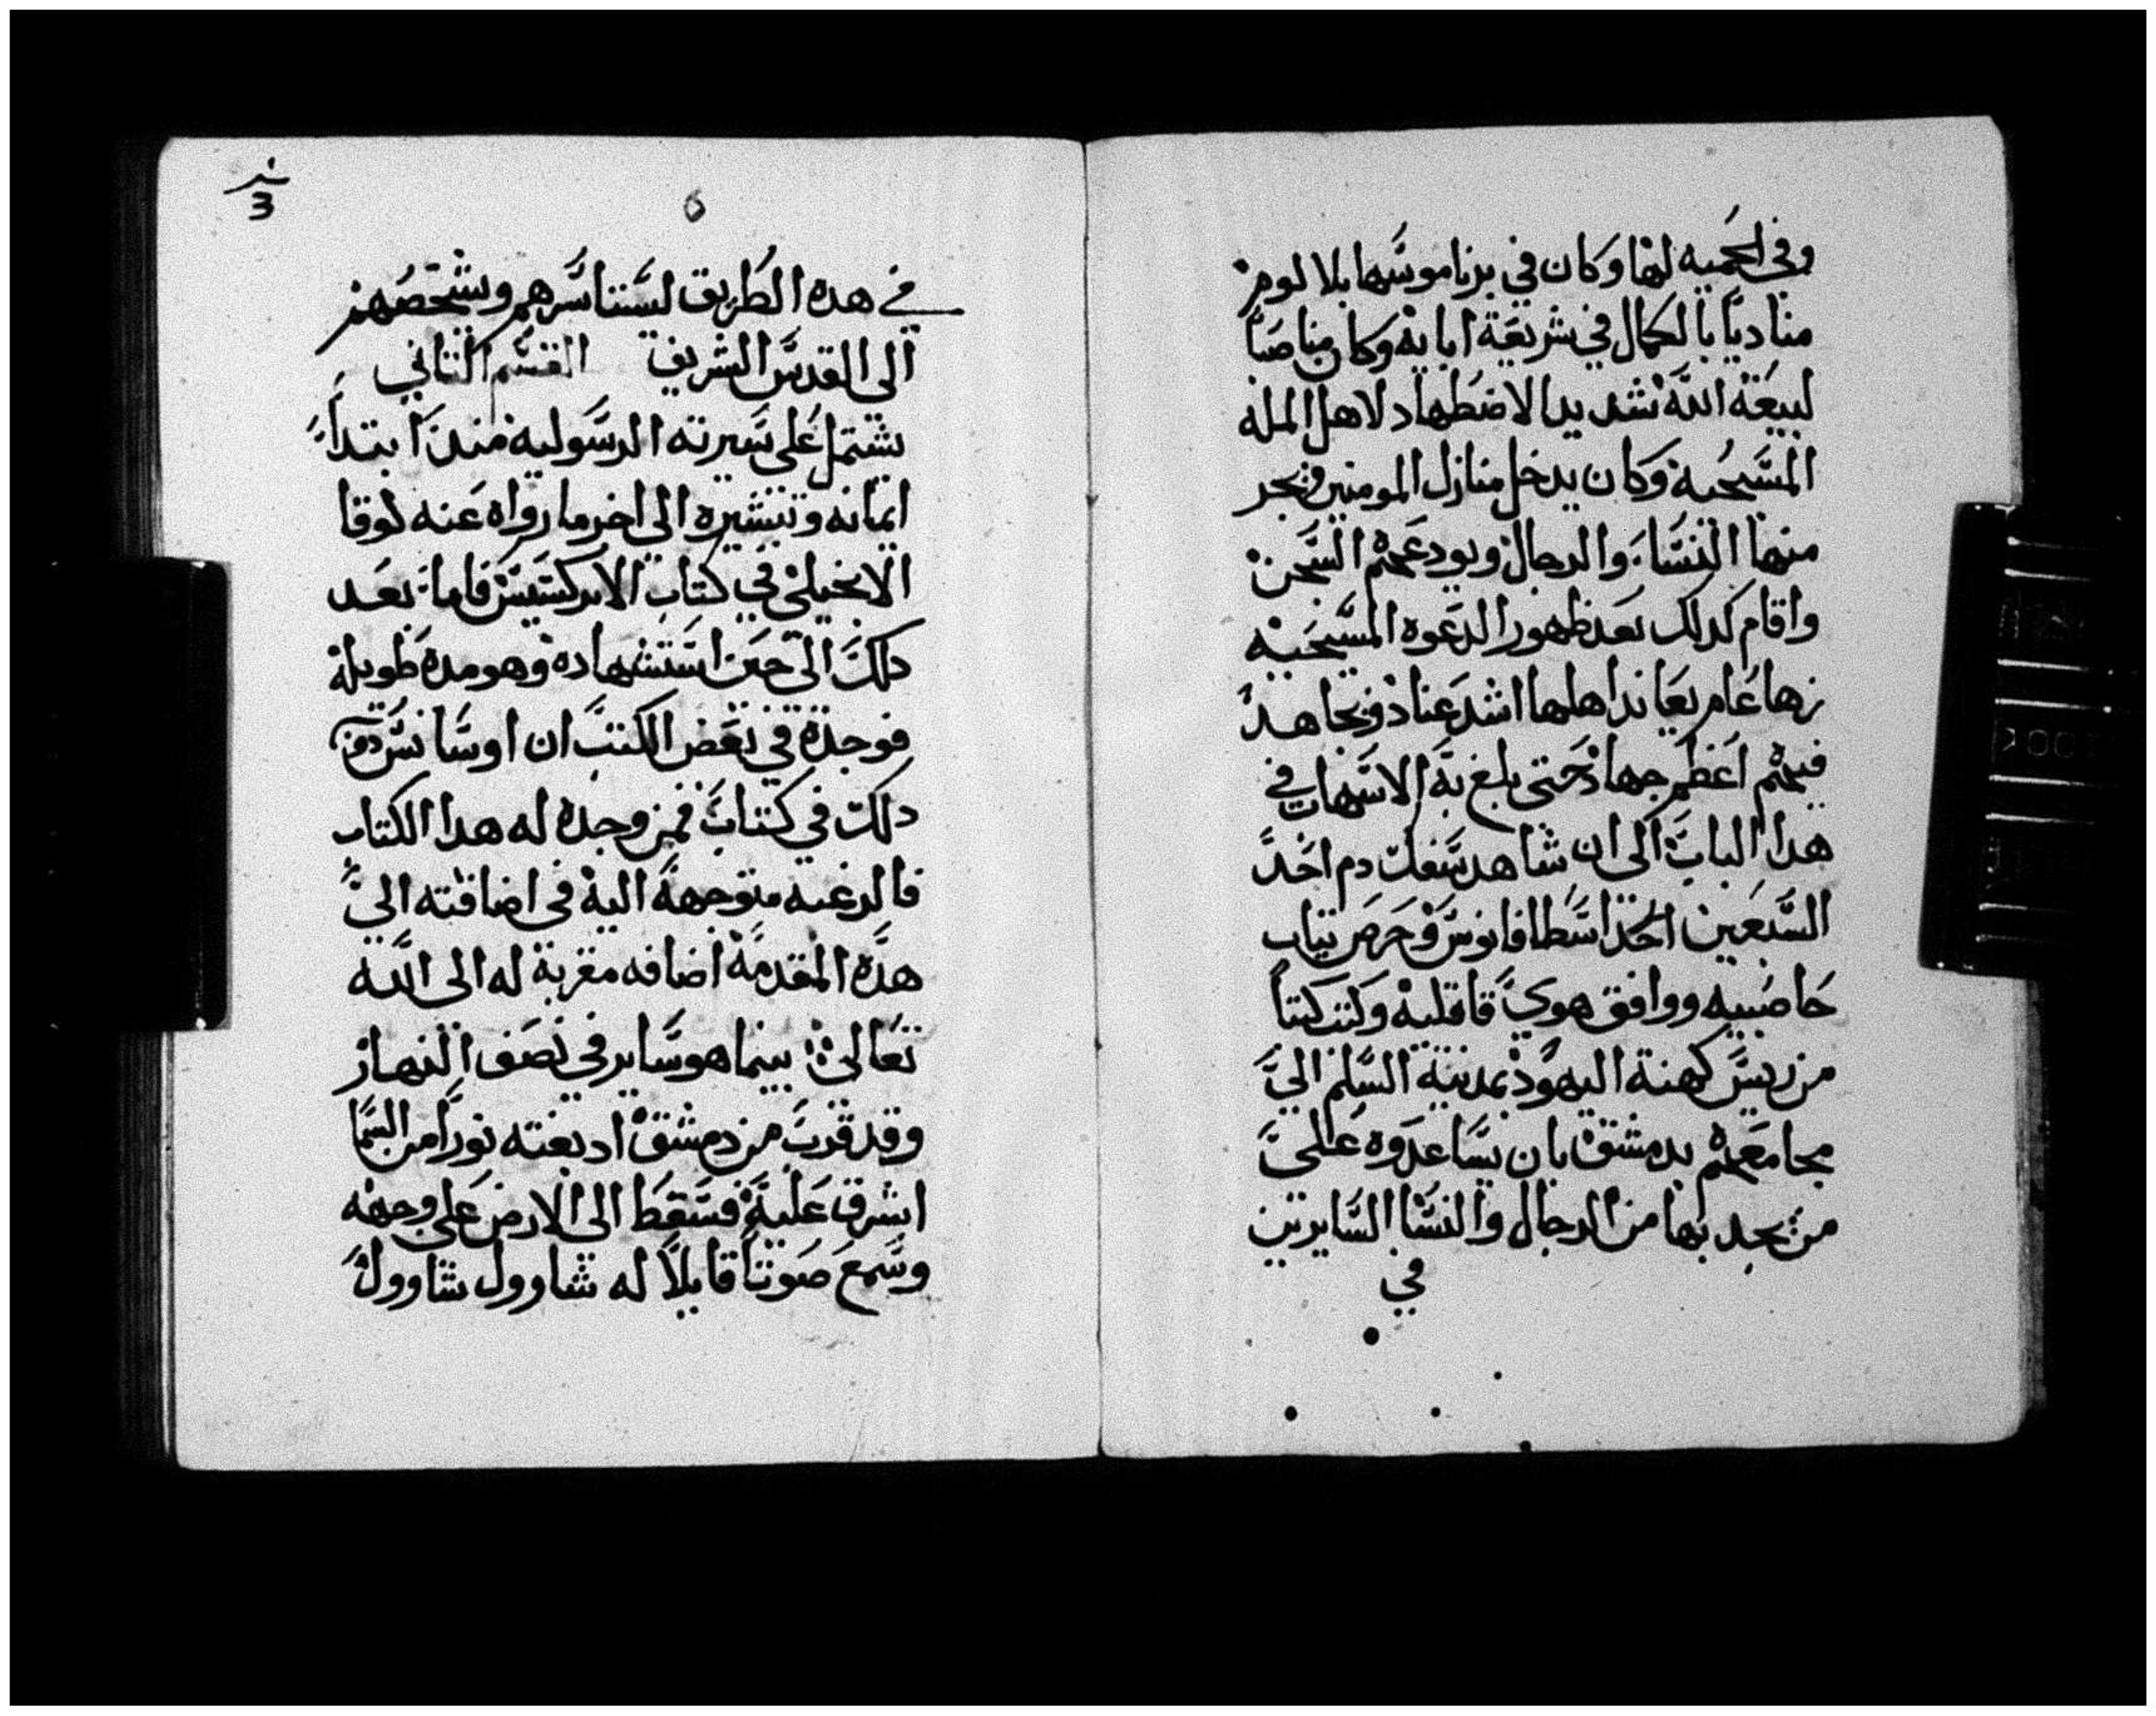 وفي الحميه لها وكان في برناموسها بلا لوم
مناديًا بالكمال في شريعة ابايه وكان مناصبًا
لبيعة الله شديدا لاضطهاد لاهل المله
المسيحية وكان يدخل منازل المومنين فيجر
منها النسا والرجال ويودعهم السجن
واقام كدلك بعد ظهور الدعوه المسيحيه
زها عام يعاند اهلها اشد عناد ويجاهد
فيهم اعظم جهاد حتى بلغ به الانتهات في
هدا الباب الى ان شاهد سفك دم احد
السبعين احد اسطافانوس وحرص تياب
حاصبيه ووافق هوي قاتليه وكتب كتبًا
من ريس كهنة اليهود بمدينة السلم الي
مجامعهم بدمشق بان يساعدوه علي
من يجد بها من الرجال والنسا السايرين
في
ن
3
٥
في هده الطريق لستاسرهم ويشخصهم
الى القدس الشريف القسم التاني
يشتمل على سيرته الرسوليه مند ابتدا
ايمانه وتبشيره الى اخر ما رواه عنه لوقا
الانجيلي في كتاب الابركسيس فاما بعد
دلك الى حين استشهاده وهو مده طويلة
فوجدة في بعض الكتب ان اوسانس دون
دلك في كتاب فمن وجده له هدا الكتاب
فالرغبه متوجهة اليه في اضافته الي
هده المقدمة اضافه مقربة له الى الله
تعالي بينما هو ساير في نصف النهار
وقد قرب من دمشق اد بغته نورًا من السما
اشرق عليه فسقط الى الارض على وجهه
وسمع صوتًا قايلاً له شاوول شاوول